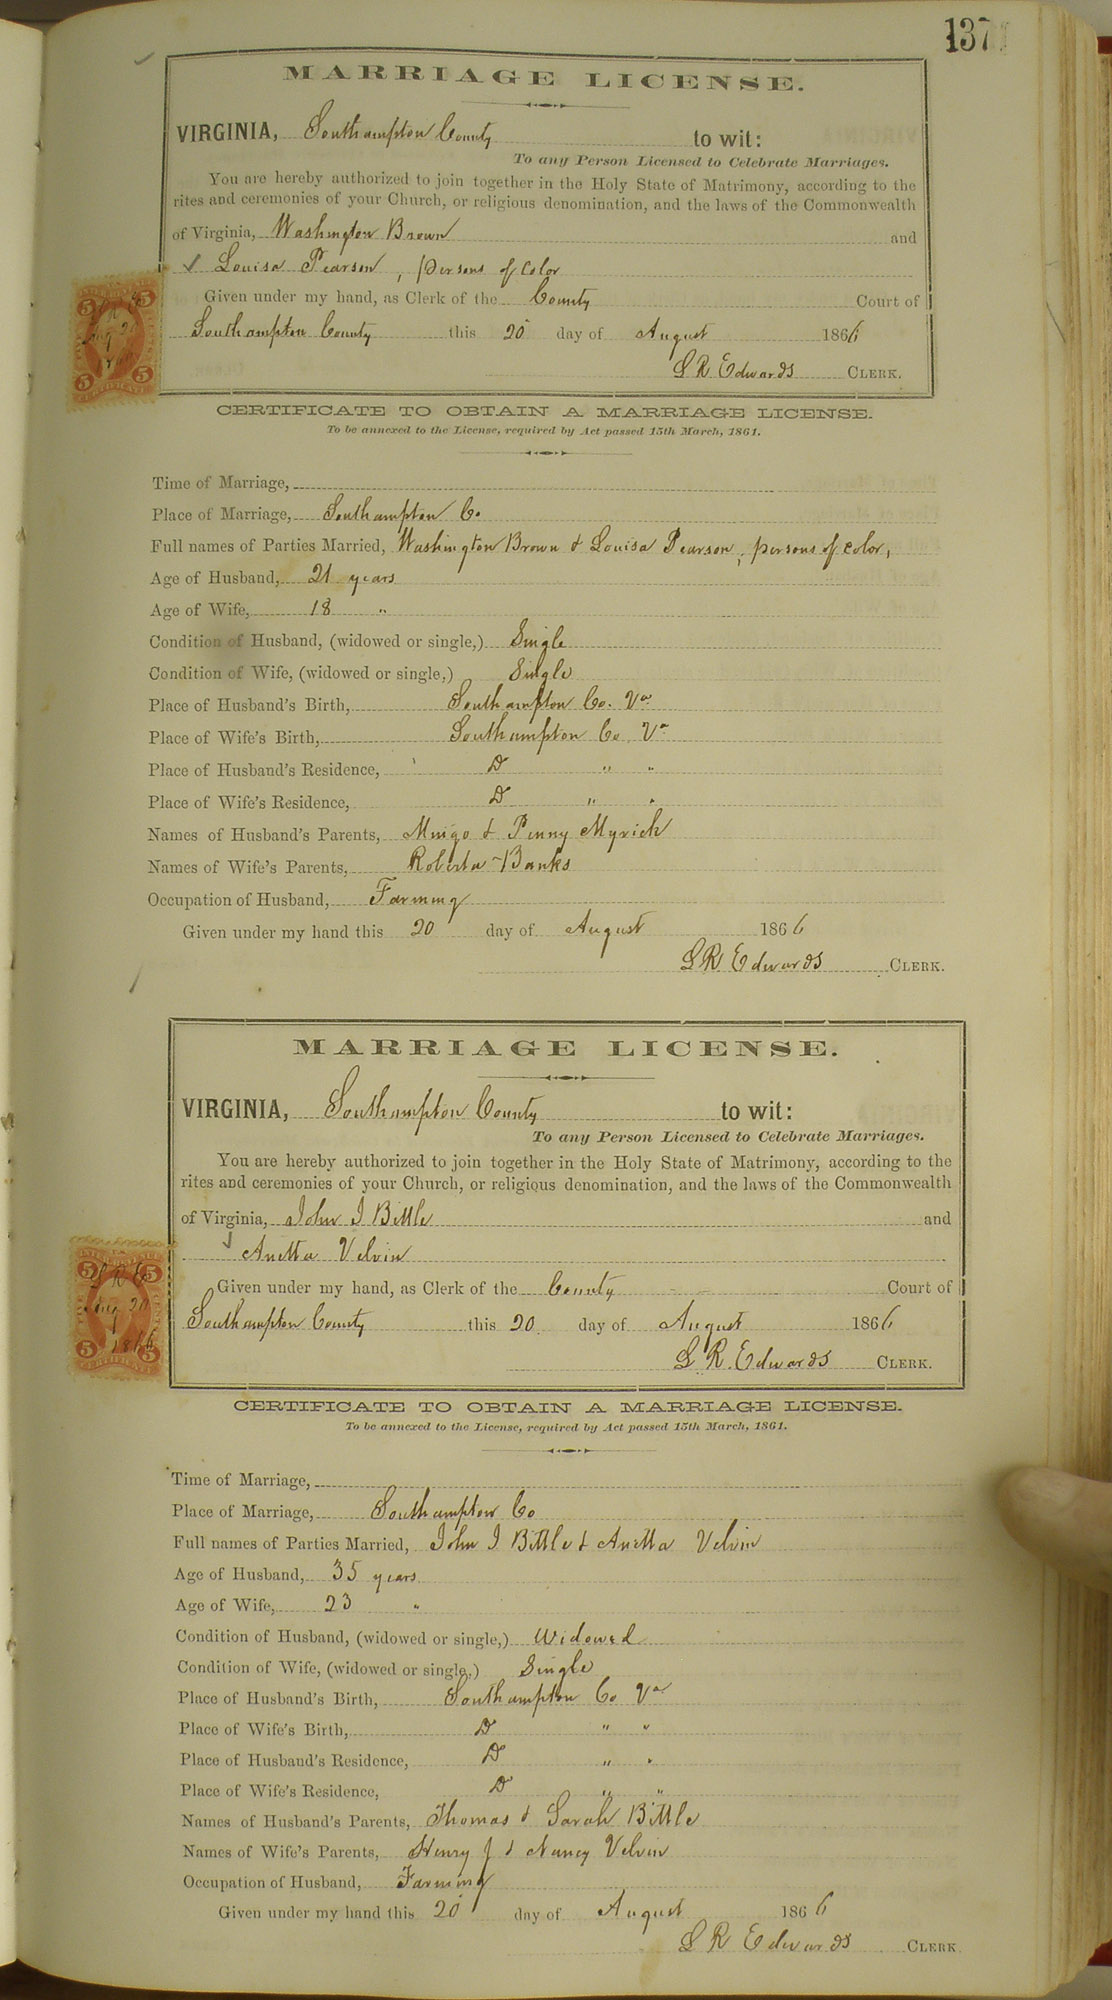 137
MARRIAGE LICENSE.
VIRGINIA, Southampton County to wit:
To any Person Licensed to Celebrate Marriages.
You are hereby authorized to join together in the Holy State of Matrimony, according to the
rites and ceremonies of your Church, or religious denomination, and the laws of the Commonwealth
of Virginia, Washington Brown and
Louisa Pearson, persons of color
Given under my hand, as Clerk of the County Court of
Southampton County this 20 day of August 1866
L R Edwards CLERK.
CERTIFICATE TO OBTAIN A MARRIAGE LICENSE.
To be annexed to the License, required by Act passed 15th March, 1861.
Time of Marriage,
Place of Marriage, Southampton Co
Full names of Parties Married, Washington Brown & Louisa Pearson, persons of color,
Age of Husband, 21 years
Age of Wife, 18 "
Condition of Husband, (widowed or single,) Single
Condition of Wife, (widowed or single,) Single
Place of Husband's Birth, Southampton Co. Va
Place of Wife's Birth, Southampton Co Va
Place of Husband's Residence, D " "
Place of Wife's Residence, D " "
Names of Husband's Parents, Mingo & Penny Myrick
Names of Wife's Parents, Roberta Banks
Occupation of Husband, Farming
Given under my hand this 20 day of August 1866
L R Edwards CLERK.
MARRIAGE LICENSE.
VIRGINIA, Southampton County to wit:
To any Person Licensed to Celebrate Marriages.
You are hereby authorized to join together in the Holy State of Matrimony, according to the
rites and ceremonies of your Church, or religious denomination, and the laws of the Commonwealth
of Virginia, John J Bittle and
Anetta Velvin
Given under my hand, as Clerk of the County Court of
5 L R E 5
Aug 20
1866
5 5
CERTIFICATE
Southampton County this 20 day of August 1866
L R. Edwards CLERK.
CERTIFICATE TO OBTAIN A MARRIAGE LICENSE.
To be annexed to the License, required by Act passed 15th March, 1861.
Time of Marriage,
Place of Marriage, Southampton Co
Full names of Parties Married, John J Bittle & Anetta Velvin
Age of Husband, 35 years
Age of Wife, 23 "
Condition of Husband, (widowed or single,) Widowed
Condition of Wife, (widowed or single,) Single
Place of Husband's Birth, Southampton Co Va
Place of Wife's Birth, D " "
Place of Husband's Residence, D " "
Place of Wife's Residence, D " "
Names of Husband's Parents, Thomas & Sarah Bittle
Names of Wife's Parents, Henry J & Nancy Velvin
Occupation of Husband, Farming
Given under my hand this 20 day of August 1866
L R Edwards CLERK.